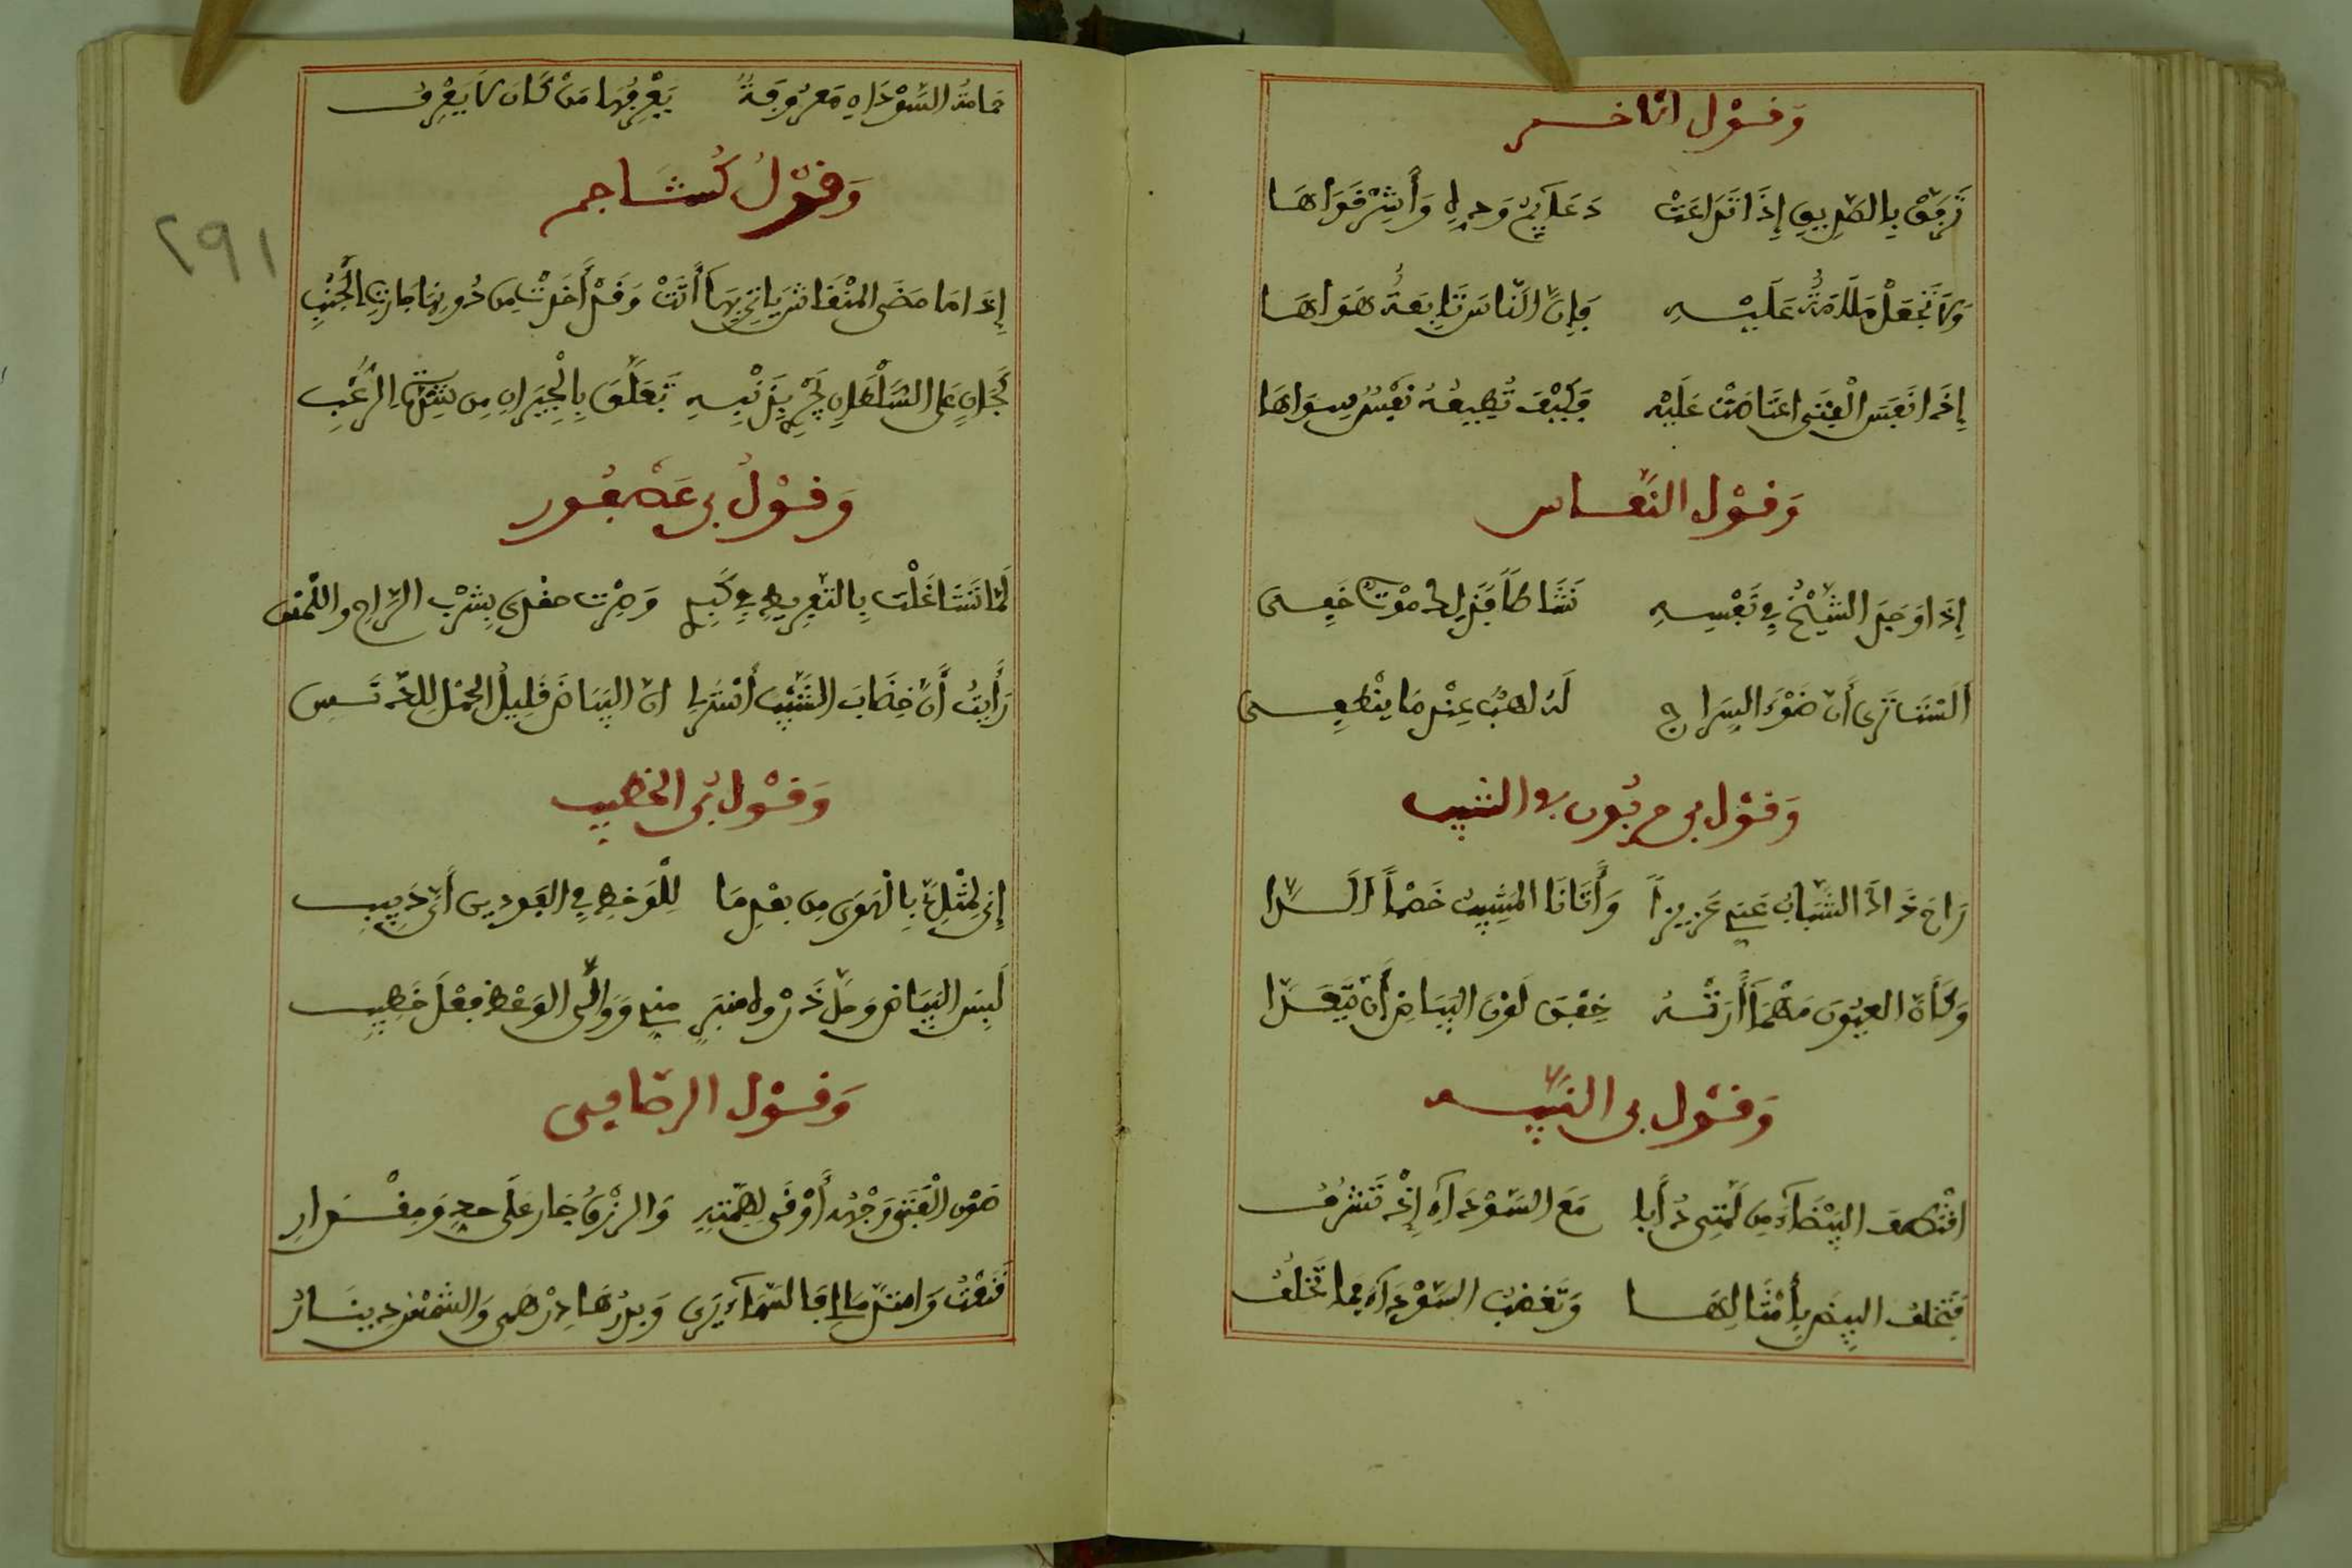 وَقَوْل الاخــر
تَرَفَّقْ بِالطَّرِيقِ إِذَا تَدَاعَتْ دَعَائِمُ وَجْدِهِ وَأَشِرْ قُوَاهَا
وَلَا تَجْعَلْ مَلَامَتُهُ عَلَيْــهِ فَإِنَّ النَّاسَ تَابِعَةٌ هَوَاهَا
إِذَا نَفْسُ الْفَتَى اعْتَاصَتْ عَلَيْهِ فَكَيْفَ تُطِيعُهُ نَفْسٌ سِوَاهَا
وَقَوْل النحّــاس
إِذَا وَجَدَ الشَّيْخُ فِي نَفْسِهِ نَشَاطًا فَذَلِكَ مَوْتٌ خَفِــى
أَلَسْتَ تَرَى أَنَّ ضَوْءَ السِّرَاجِ لَهُ لَهَبٌ عِنْدَ مَا يَنْطَفِــى
وَقَوْل بن فى الشيب
رَاحَ ذَاكَ الشَّبَابُ عَنِّي عَزِيزاً وَأَتَانَا الْمَشِيبُ خَصْماً أَلَــدَّا
وَكَأَنَّ الْعُيُونَ مَهْمَا أَرَتْــهُ خِفْنَ لَوْنَ الْبَيَاضِ أَن يَتَعَــدَّا
وَقَوْل بن النبيــه
اقْتَطِفُ الْبَيْضَاءَ مِن لِمَّتِى دَأَبا مَعَ السَّوْدَاءِ إِذْ تَشْرُفُ
فَتَخْلُفُ الْبِيضُ بِأَمْثَالِهَــا وَتَغْضَبُ السَّوْدَاءُ فَمَا تَخْلُفُ
حَمَامَةُ السَّوْدَاءِ مَعْرُوفَةٌ يَعْرِفُهَا مَنْ كَانَ لَا يَعْرِفُ
وَقَوْلُ كُشَــاجِم
إِذَا مَا مَضَى الْمِنْقَاشُ يَأْتِي بِهَا أَتَتْ وَقَدْ أَخَذَتْ مِن دُونِهَا جَارَةُ الْجَنْبِ
كَجَانٍ عَلَى السُّلْطَانِ يُجْزَى بِذَنْبِــهِ تَعَلَّقَ بِالْجِيرَانِ مِن شِدَّةِ الرُّعْبِ
وَقَوْل بن عصفــور
لَمَّا تَشَاغَلْتُ بِالتَّفْرِيطِ فِي كِبَرِى وَصِرْتُ مغرى بِشُرْبِ الرَّاحِ وَاللَّعَسِ
رَأَيْتُ أَنَّ خِضَابَ الشَّيْبِ أَسْتَرُ لِى انّ الْبَيَاضَ قَلِيلُ الْحَمْلِ لِلدَّنَــسِ
وَقَوْل بن الخطيب
إِنِّي لِمِثْلِي بِالْهَوَى مِن بَعْدِ مَا لِلْوَخْطِ فِي الْفَوْدَيْنِ أَيُّ دَبِيبِ
لَبِسَ الْبَيَاضَ وَحَلَّ ذَرْوَةَ مِنْبَرٍ مِنِّي وَوَالَى الْوَعْظَ فِعْلَ خَطِيبِ
وَقَوْل الرصافــى
صَوْنُ الْفَتَى وَجْهَهُ أَوْفَى لِهِمَّتِهِ وَالرِّزْقُ جَارٍ عَلَى حَدٍّ وَمِقْــدَارِ
قَنَعْتُ وَامْتَدَّ مَالِي فَالسَّمَاءُ يَدِي وَبَدْرُهَا دِرْهَمِى وَالشَّمْسُ دِينَــارُ
٢٩١